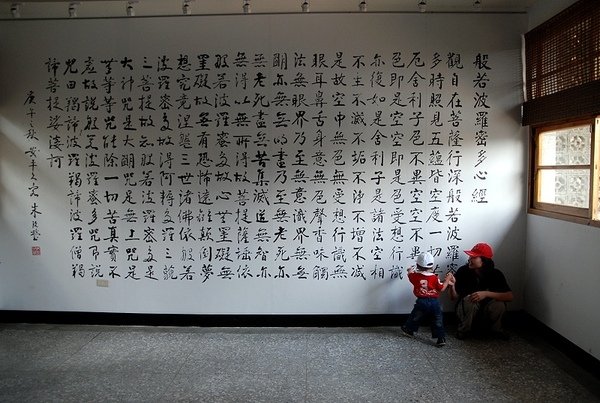 般若波羅密多心經
觀自在菩薩行深般若波羅密
多時照見五蘊皆空度一切
厄舍利子色不異空空不異
色即是空空即是色受想行識
亦復如是舍利子是諸法空相
不生不滅不垢不淨不增不減
是故空中無色無受想行識無
眼耳鼻舌身意無色聲香味觸
法無眼界乃至無意識界無無
明亦無無明盡乃至無老死亦
無老死盡無苦集滅道無智亦
無得以無所得故菩提薩埵依
般若波羅密多故心無罣礙無
罣礙故無有恐怖遠離顛倒夢
想究竟涅槃三世諸佛依般若
波羅密多故得阿耨多羅三藐
三菩提故知般若波羅密多是
大神咒是大明咒是無上咒是
無等等咒能除一切苦真實不
虛故說般若波羅密多咒即說
咒曰羯諦波羅羯諦波羅僧羯
諦菩提娑婆訶
朱玖瑩